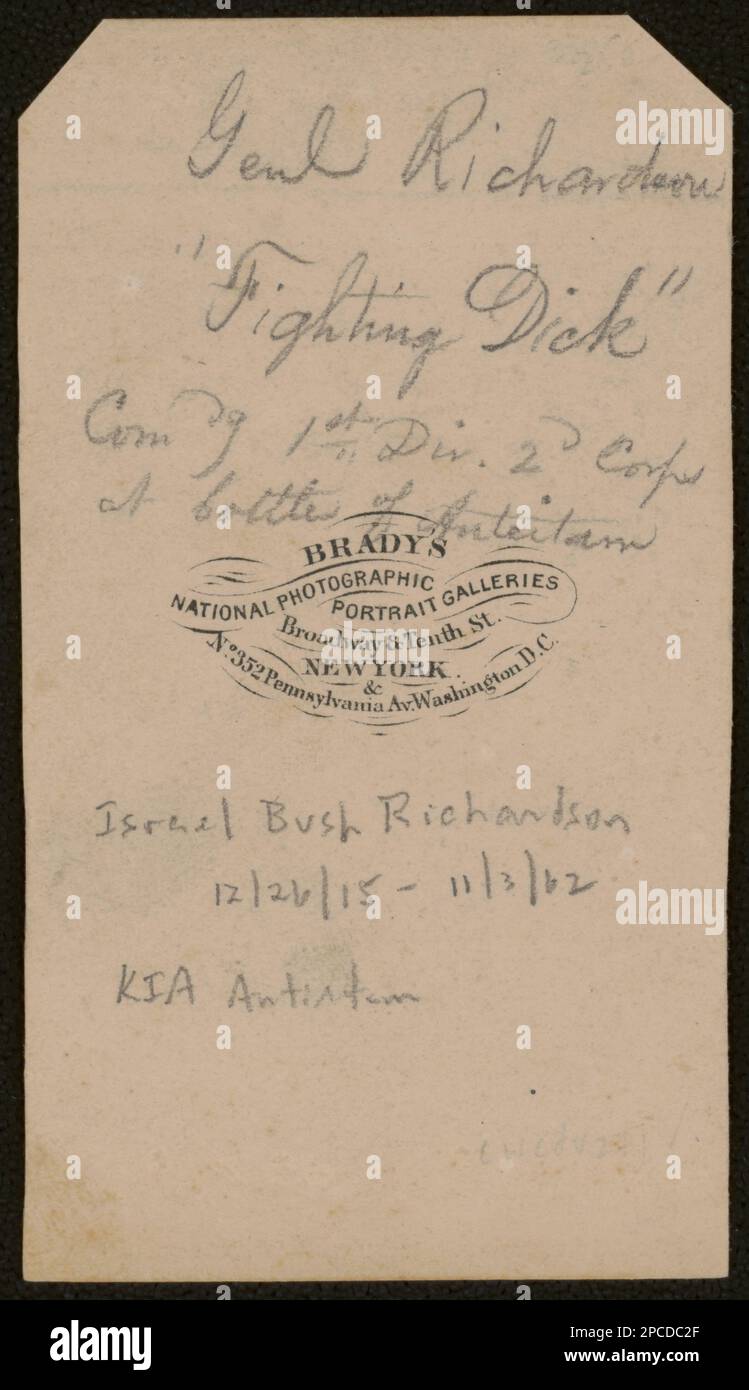 Genl Richardson
"Fighting Dick"
Com'd'g 1st Div. 2d Corps
at battle of Anteitam
BRADY'S
NATIONAL PHOTOGRAPHIC PORTRAIT GALLERIES
Broadway & Tenth St.
NEW YORK.
&
No. 352 Pennsylvania Av. Washington D.C.
Israel Bush Richardson
12/26/15 - 11/3/62
KIA Antietam
alamy
alamy
alamy
alamy
Image ID: 2PCDC2F
www.alamy.com